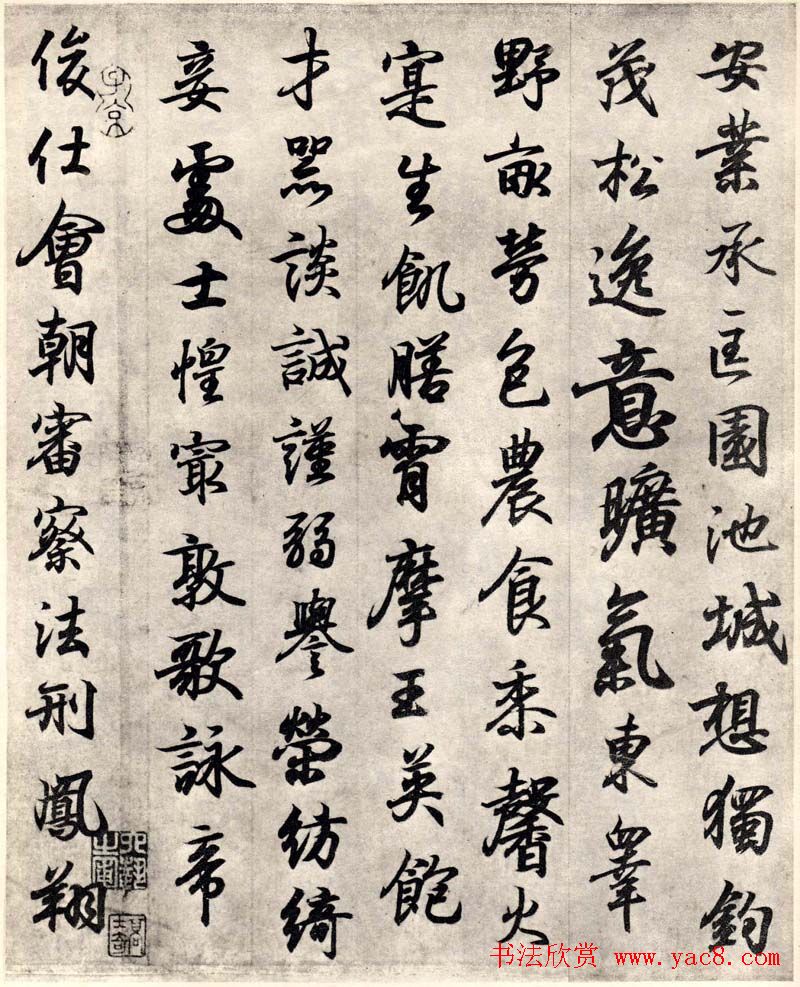 安業承匡園池城想獨鈞
茂松逸意曠氣東睾
野畝勞包農食黍馨火
寔生飢膳摩王英飽
才器談誠謹弱譽榮紡綺
妾處士惶㝡敦歌詠帝
俊仕會朝審察法刑鳳翔
子京
书法欣赏 www.yac8.com